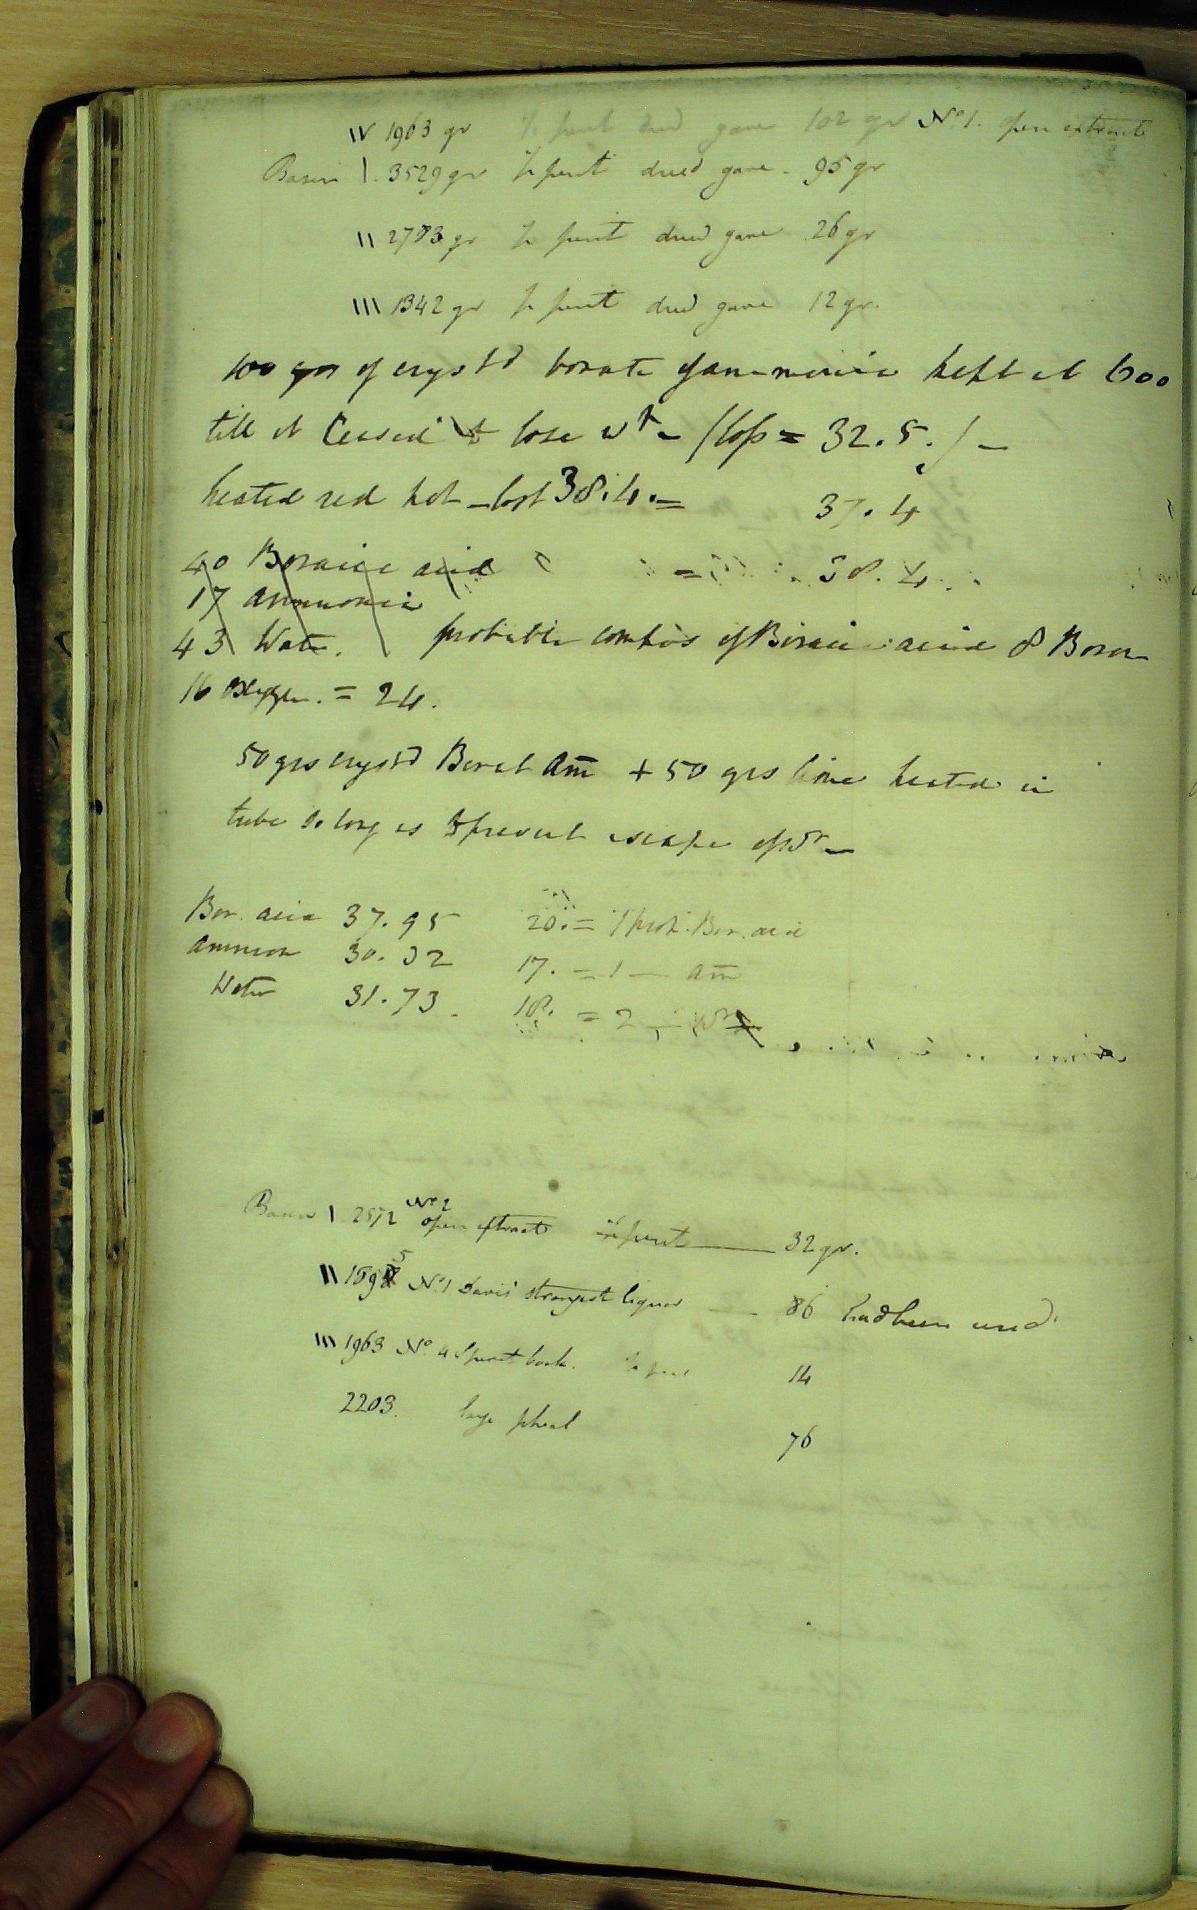 IV 1963 gr ½ pint dried gave 102 gr No 1. open extract
Basin I. 3529 gr ½ pint dried gave - 95 gr
II 2783 gr ½ pint dried gave 26 gr
III 1342 gr ½ pint dried gave 12 gr.
100 grs of crystd borate of ammonia kept at 600
till it ceased to lose wt - (loss = 32.5.) -
heated red hot - lost 38.4. = 37.4
40 Boracic acid = 38.4
17 Ammonia
43 Water. probable compos of Boracic acid 8 Boron
16 oxygen. = 24.
50 grs crystd Borat Am + 50 grs lime heated in
tube so long as to prevent escape of Wr -
Bor. acid 37.95 20. = 1 prop. Bor. acid
Ammon 30.32 17. = 1 — Am
Water 31.73. 18. = 2 — Wr
Basin I 2572 No 2 open extract ½ pint — 32 gr.
II 1595 No 1 Davis' strongest liquor — 86 had been used
III 1963 No. 4 Spent bark. ½ pint 14
2203. large phial 76